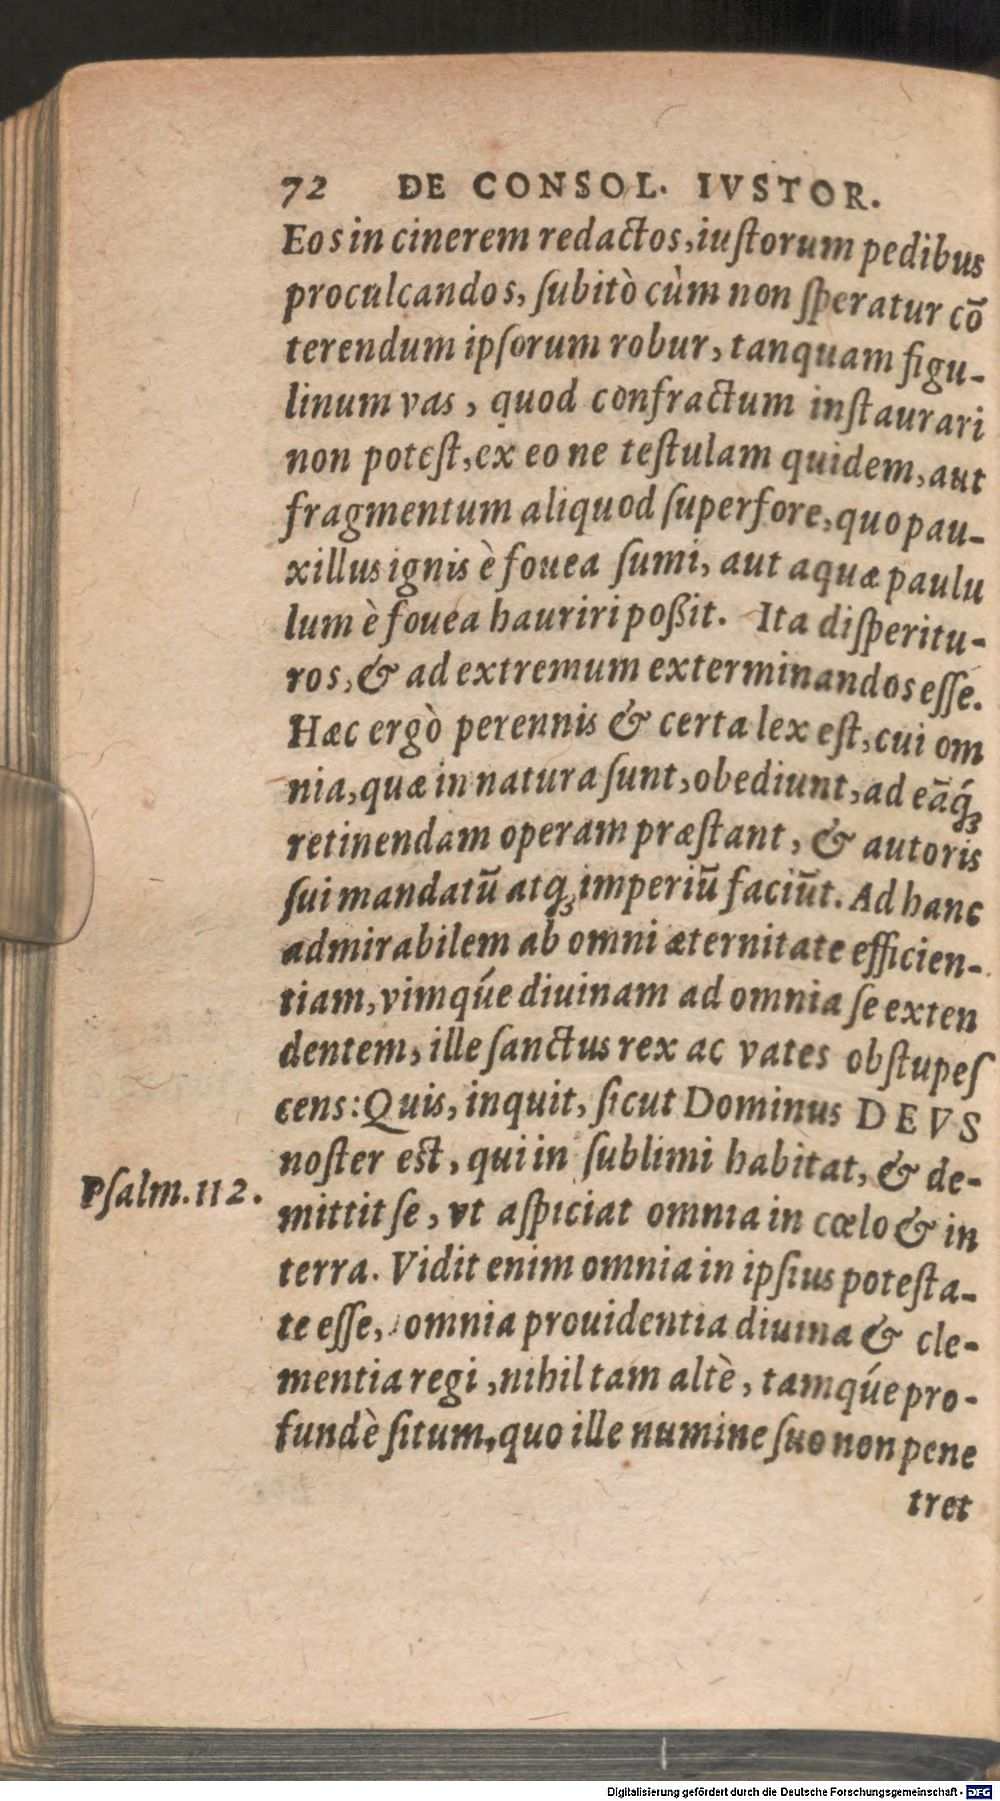 72 DE CONSOL. IVSTOR.
Eos in cinerem redactos, iuſtorum pedibus
proculcandos, ſubitò cùm non ſperatur cō
terendum ipſorum robur, tanquam figu-
linum vas, quod confractum inſtaurari
non poteſt, ex eo ne teſtulam quidem, aut
fragmentum aliquod ſuperfore, quo pau-
xillus ignis è fouea ſumi, aut aquæ paulu
lum è fouea hauriri poßit. Ita diſperitu-
ros, & ad extremum exterminandos eſſe.
Hæc ergò perennis & certa lex eſt, cui om
nia, quæ in natura ſunt, obediunt, ad eāq́ꝫ
retinendam operam præſtant, & autoris
ſui mandatū atqꝫ imperiū faciūt. Ad hanc
admirabilem ab omni æternitate efficien-
tiam, vimq́ue diuinam ad omnia ſe exten
dentem, ille ſanctus rex ac vates obſtupeſ
cens: Quis, inquit, ſicut Dominus DEVS
noſter eſt, qui in ſublimi habitat, & de-
Pſalm. 112.
mittit ſe, vt aſpiciat omnia in cœlo & in
terra. Vidit enim omnia in ipſius poteſta-
te eſſe, omnia prouidentia diuina & cle-
mentia regi, nihil tam altè, tamq́ue pro-
fundè ſitum, quo ille numine ſuo non pene
tret
Digitalisierung gefördert durch die Deutsche Forschungsgemeinschaft - DFG